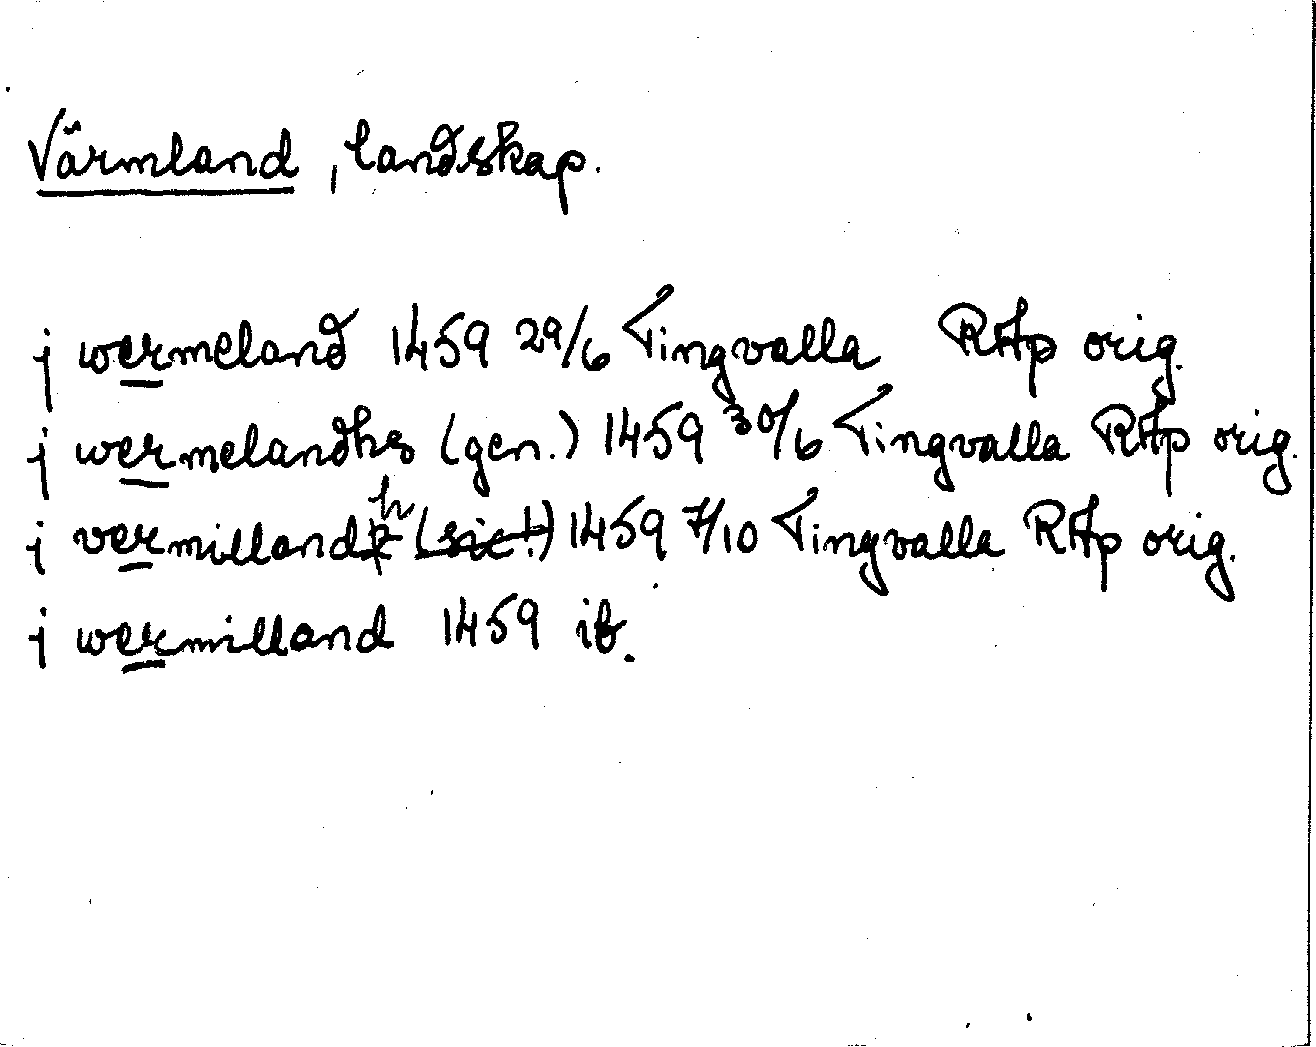 Värmland, landskap.
j wermeland 1459 29/6 Tingvalla RAp orig.
j wermelandhs (gen.) 1459 30/6 Tingvalla RAp orig.
j vermillandh 1459 7/10 Tingvalla RAp orig.
j wermilland 1459 ib.